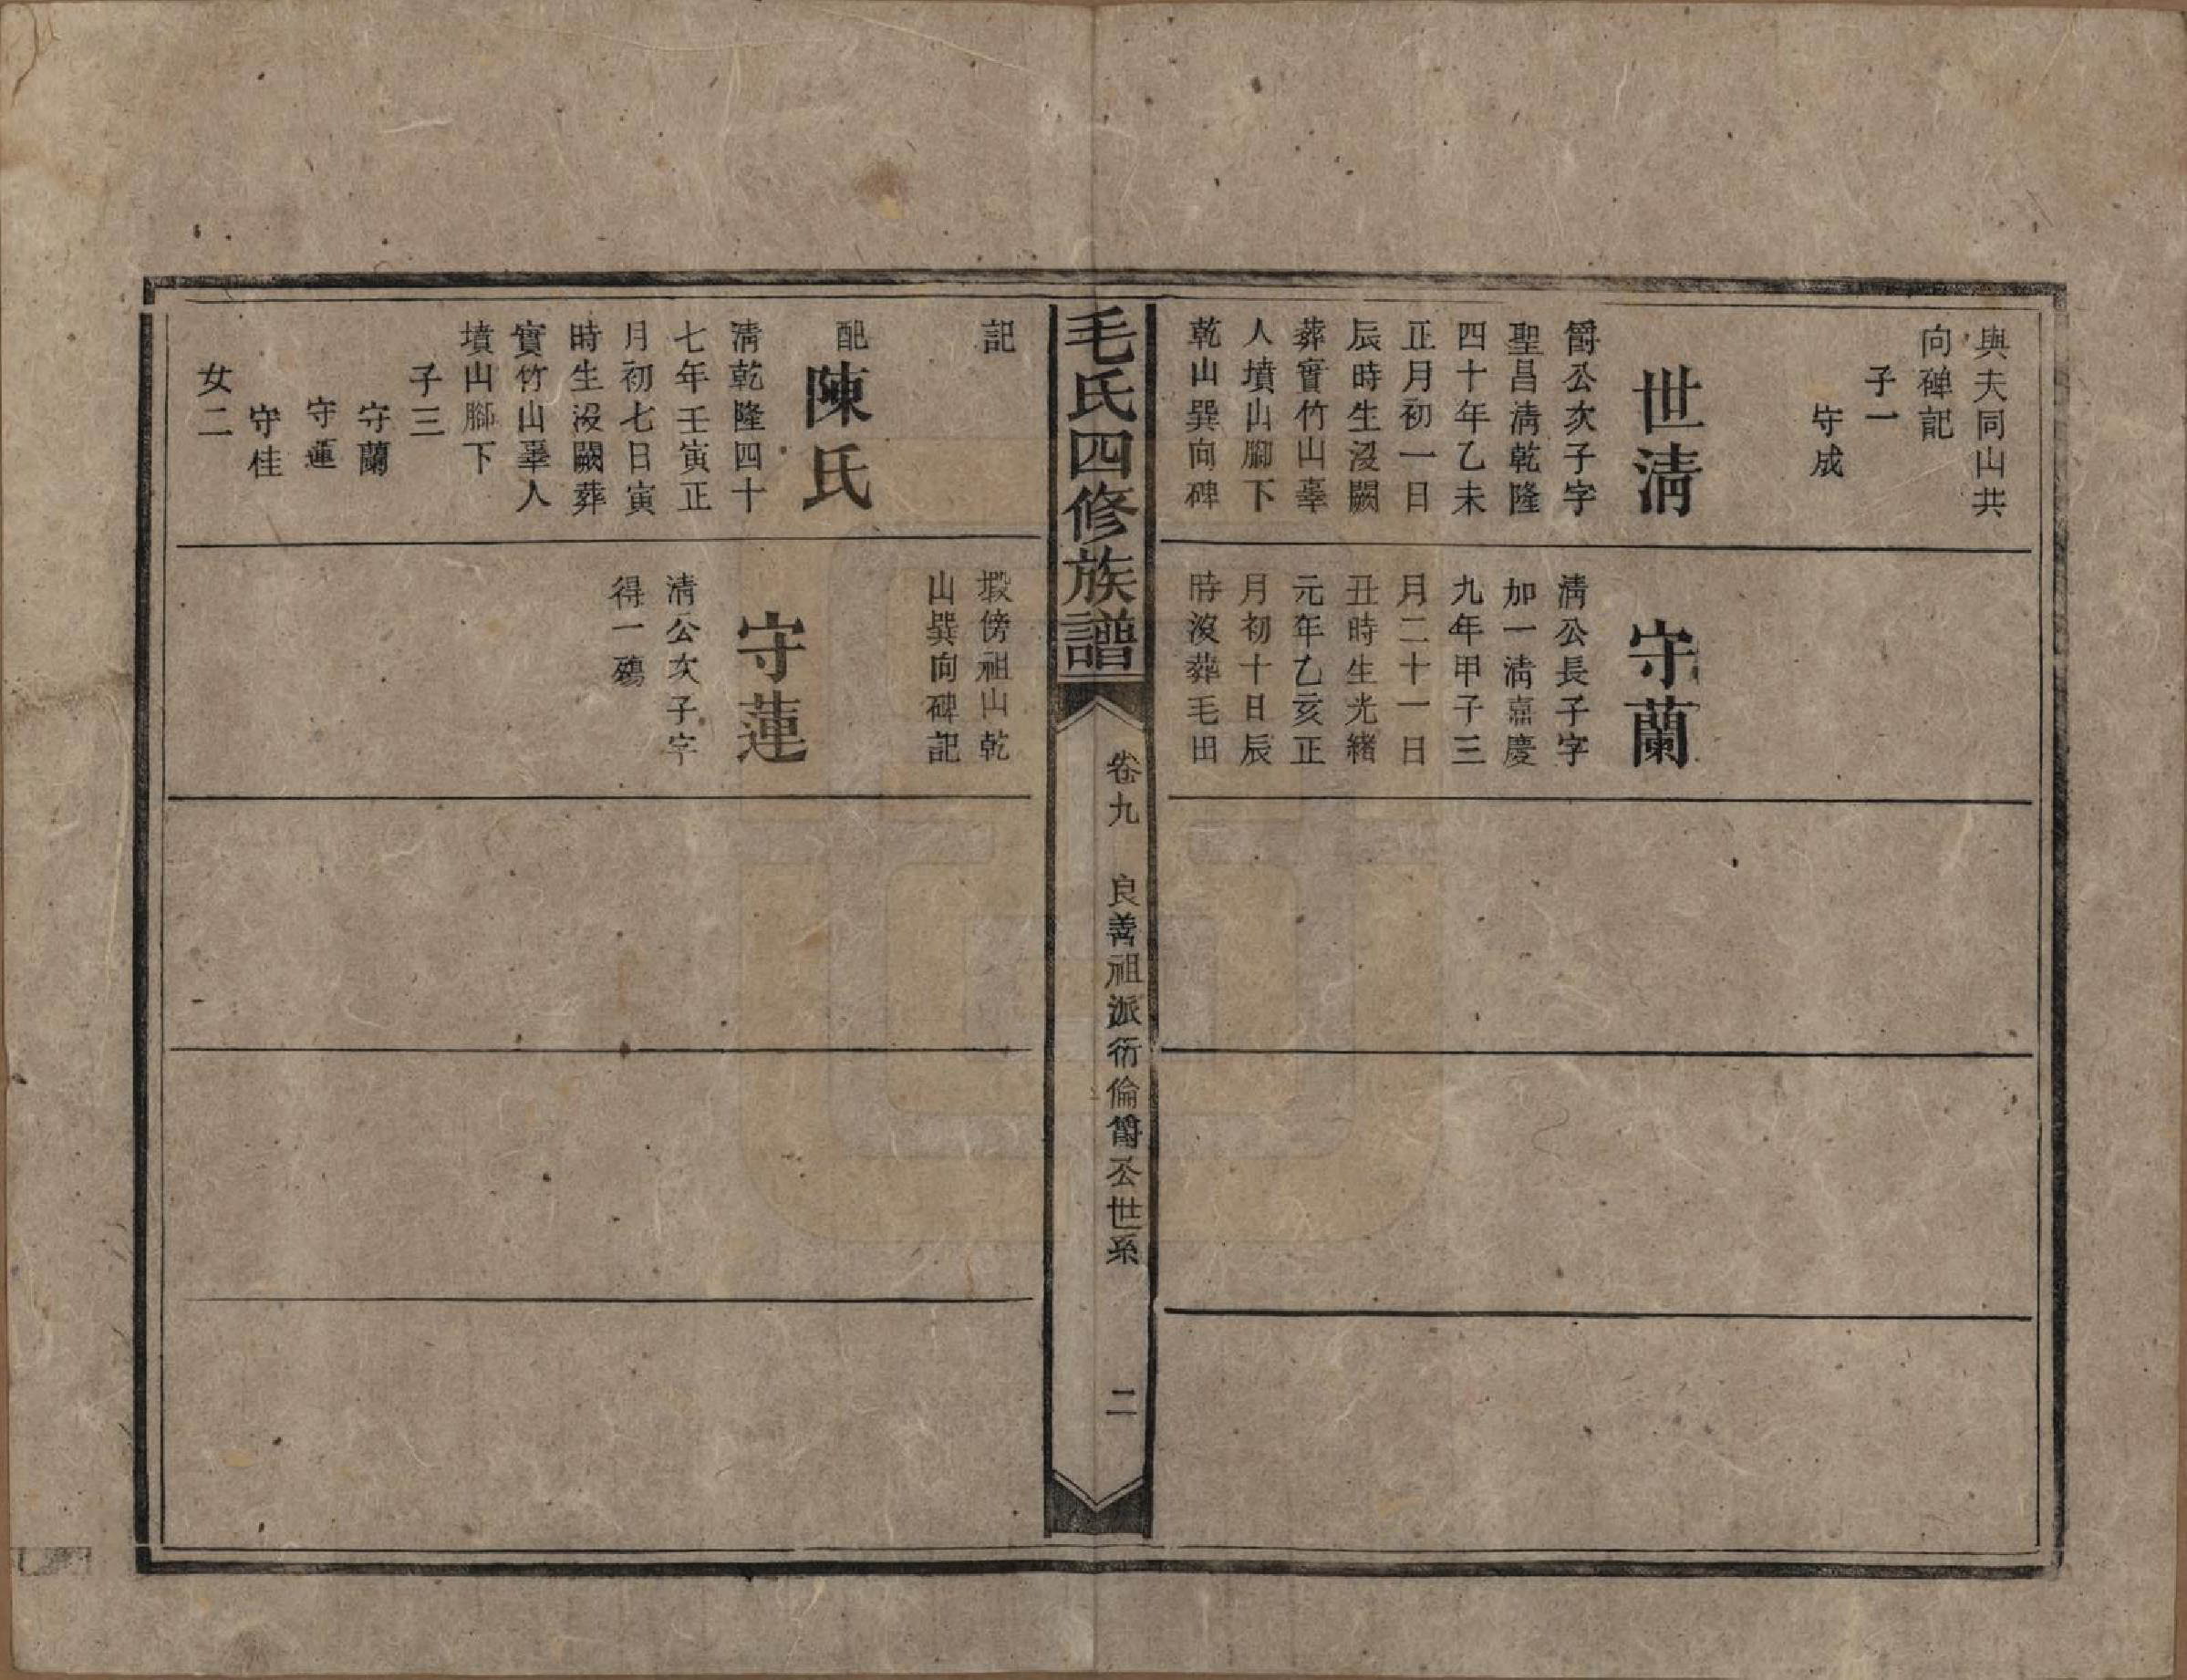 與夫同山共
向碑記
子一
守成
世淸
爵公次子字
聖昌淸乾隆
四十年乙未
正月初一日
辰時生沒闕
葬實竹山辜
人墳山腳下
乾山巽向碑
守蘭
淸公長子字
加一淸嘉慶
九年甲子三
月二十一日
丑時生光緒
元年乙亥正
月初十日辰
時沒葬毛田
毛氏四修族譜
卷九 良善祖派衍倫爵公世系 二
記
配陳氏
淸乾隆四十
七年壬寅正
月初七日寅
時生沒闕葬
實竹山辜人
墳山腳下
子三
守蘭
守蓮
守桂
女二
塅傍祖山乾
山巽向碑記
守蓮
淸公次子字
得一殤